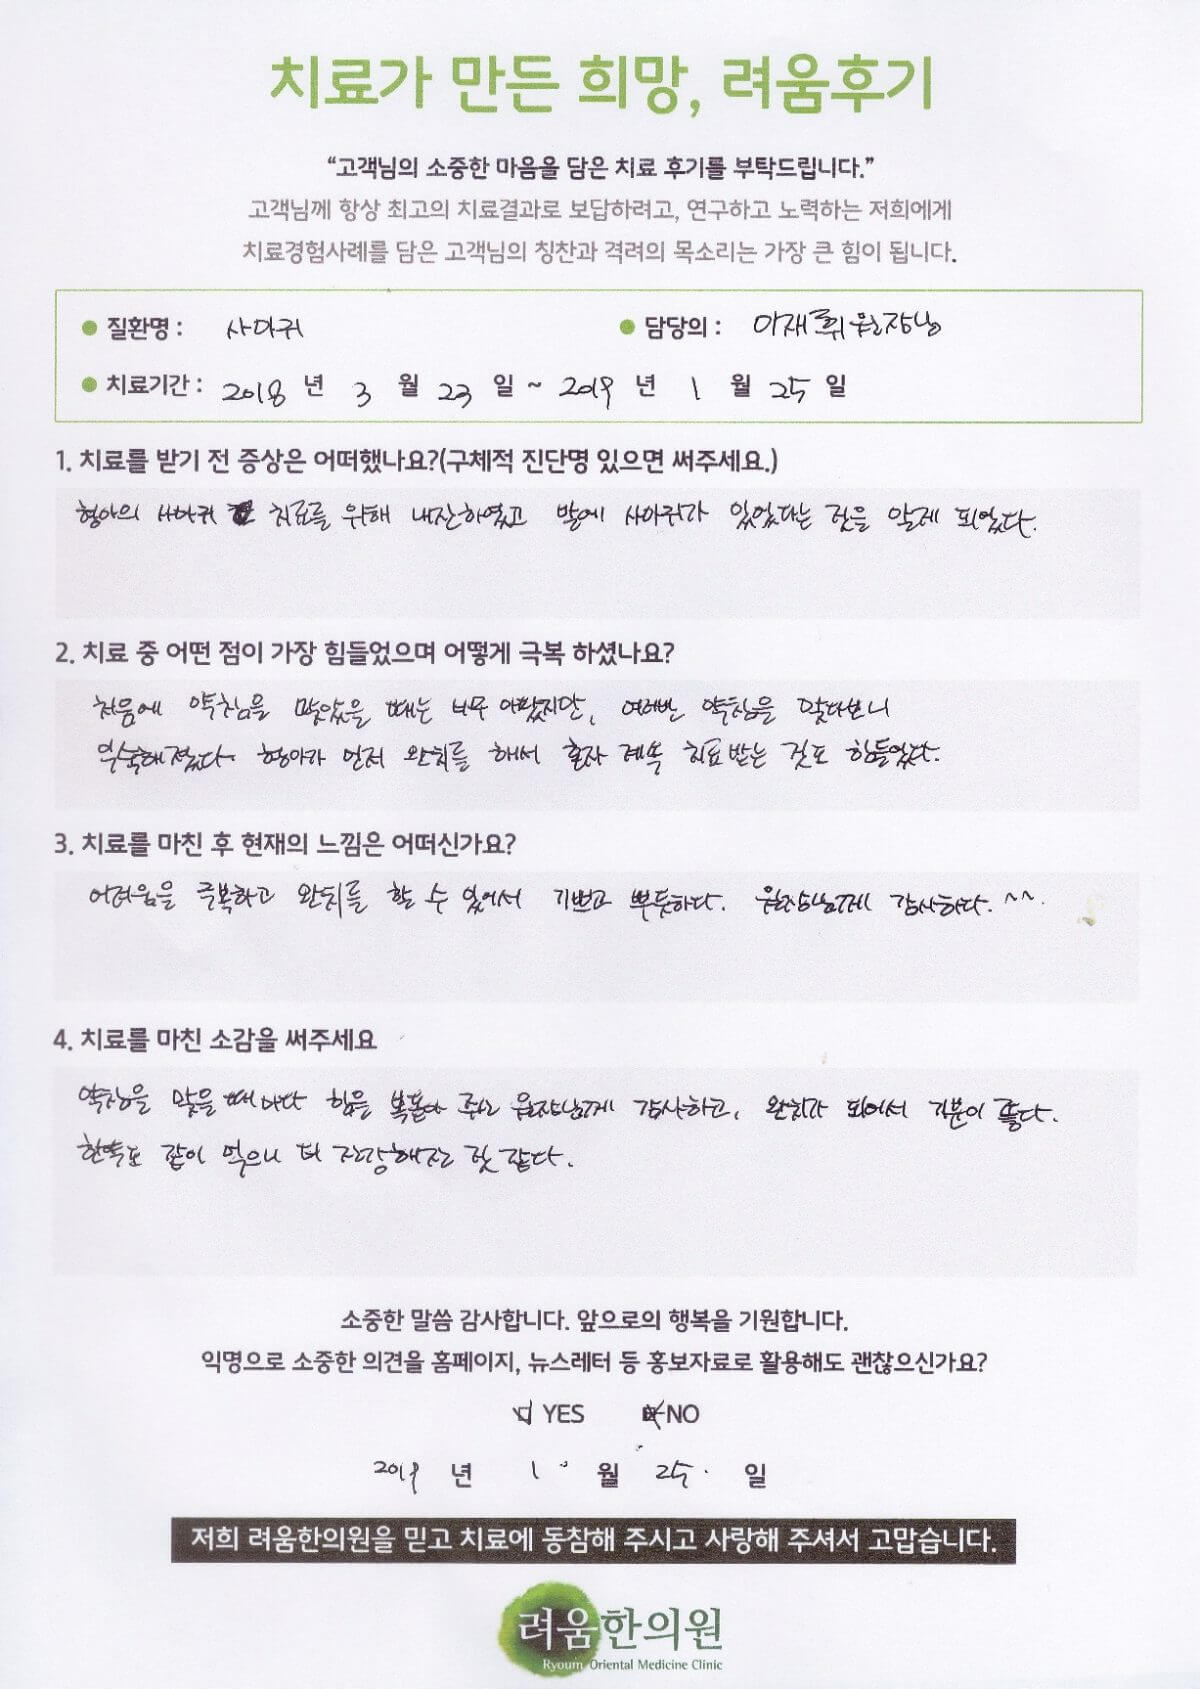 치료가 만든 희망, 려움후기
“고객님의 소중한 마음을 담은 치료 후기를 부탁드립니다.”
고객님께 항상 최고의 치료결과로 보답하려고, 연구하고 노력하는 저희에게
치료경험사례를 담은 고객님의 칭찬과 격려의 목소리는 가장 큰 힘이 됩니다.
질환명 : 사마귀 담당의 : 이재휘 원장님
치료기간 : 2018 년 3 월 23 일 ~ 2019 년 1 월 25 일
1. 치료를 받기 전 증상은 어떠했나요?(구체적 진단명 있으면 써주세요.)
형아의 사마귀 치료를 위해 내진하였고 발에 사마귀가 있었다는 것을 알게 되었다.
2. 치료 중 어떤 점이 가장 힘들었으며 어떻게 극복 하셨나요?
처음에 약침을 맞았을 때는 너무 아팠지만, 여러번 약침을 맞다보니
익숙해졌다. 형아가 먼저 완치를 해서 혼자 계속 치료받는 것도 힘들었다.
3. 치료를 마친 후 현재의 느낌은 어떠신가요?
어려움을 극복하고 완치를 할 수 있어서 기쁘고 뿌듯하다. 원장님께 감사하다. ^^.
4. 치료를 마친 소감을 써주세요
약침을 맞을 때마다 힘을 북돋아 주신 원장님께 감사하고, 완치가 되어서 기분이 좋다.
한약도 같이 먹으니 더 건강해진 것 같다.
소중한 말씀 감사합니다. 앞으로의 행복을 기원합니다.
익명으로 소중한 의견을 홈페이지, 뉴스레터 등 홍보자료로 활용해도 괜찮으신가요?
YES NO
2019 년 1 월 25. 일
저희 려움한의원을 믿고 치료에 동참해 주시고 사랑해 주셔서 고맙습니다.
려움한의원
Ryoum Oriental Medicine Clinic